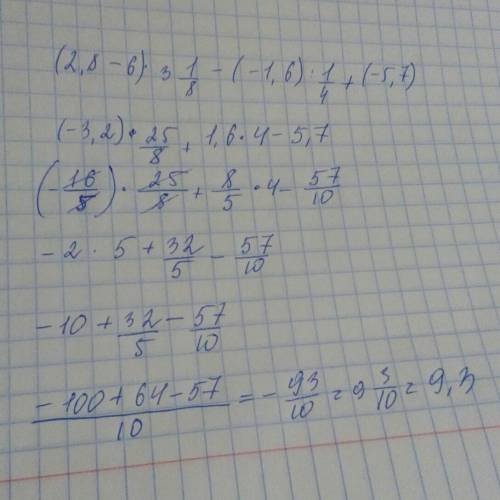 (2,8 - 6) · 3 1/8 - (-1,6) : 1/4 + (-5,7)
(-3,2) · 25/8 + 1,6 · 4 - 5,7
(-16/5) · 25/8 + 8/5 · 4 - 57/10
-2 · 5 + 32/5 - 57/10
-10 + 32/5 - 57/10
(-100 + 64 - 57)/10 = -93/10 = 9 3/10 = 9,3